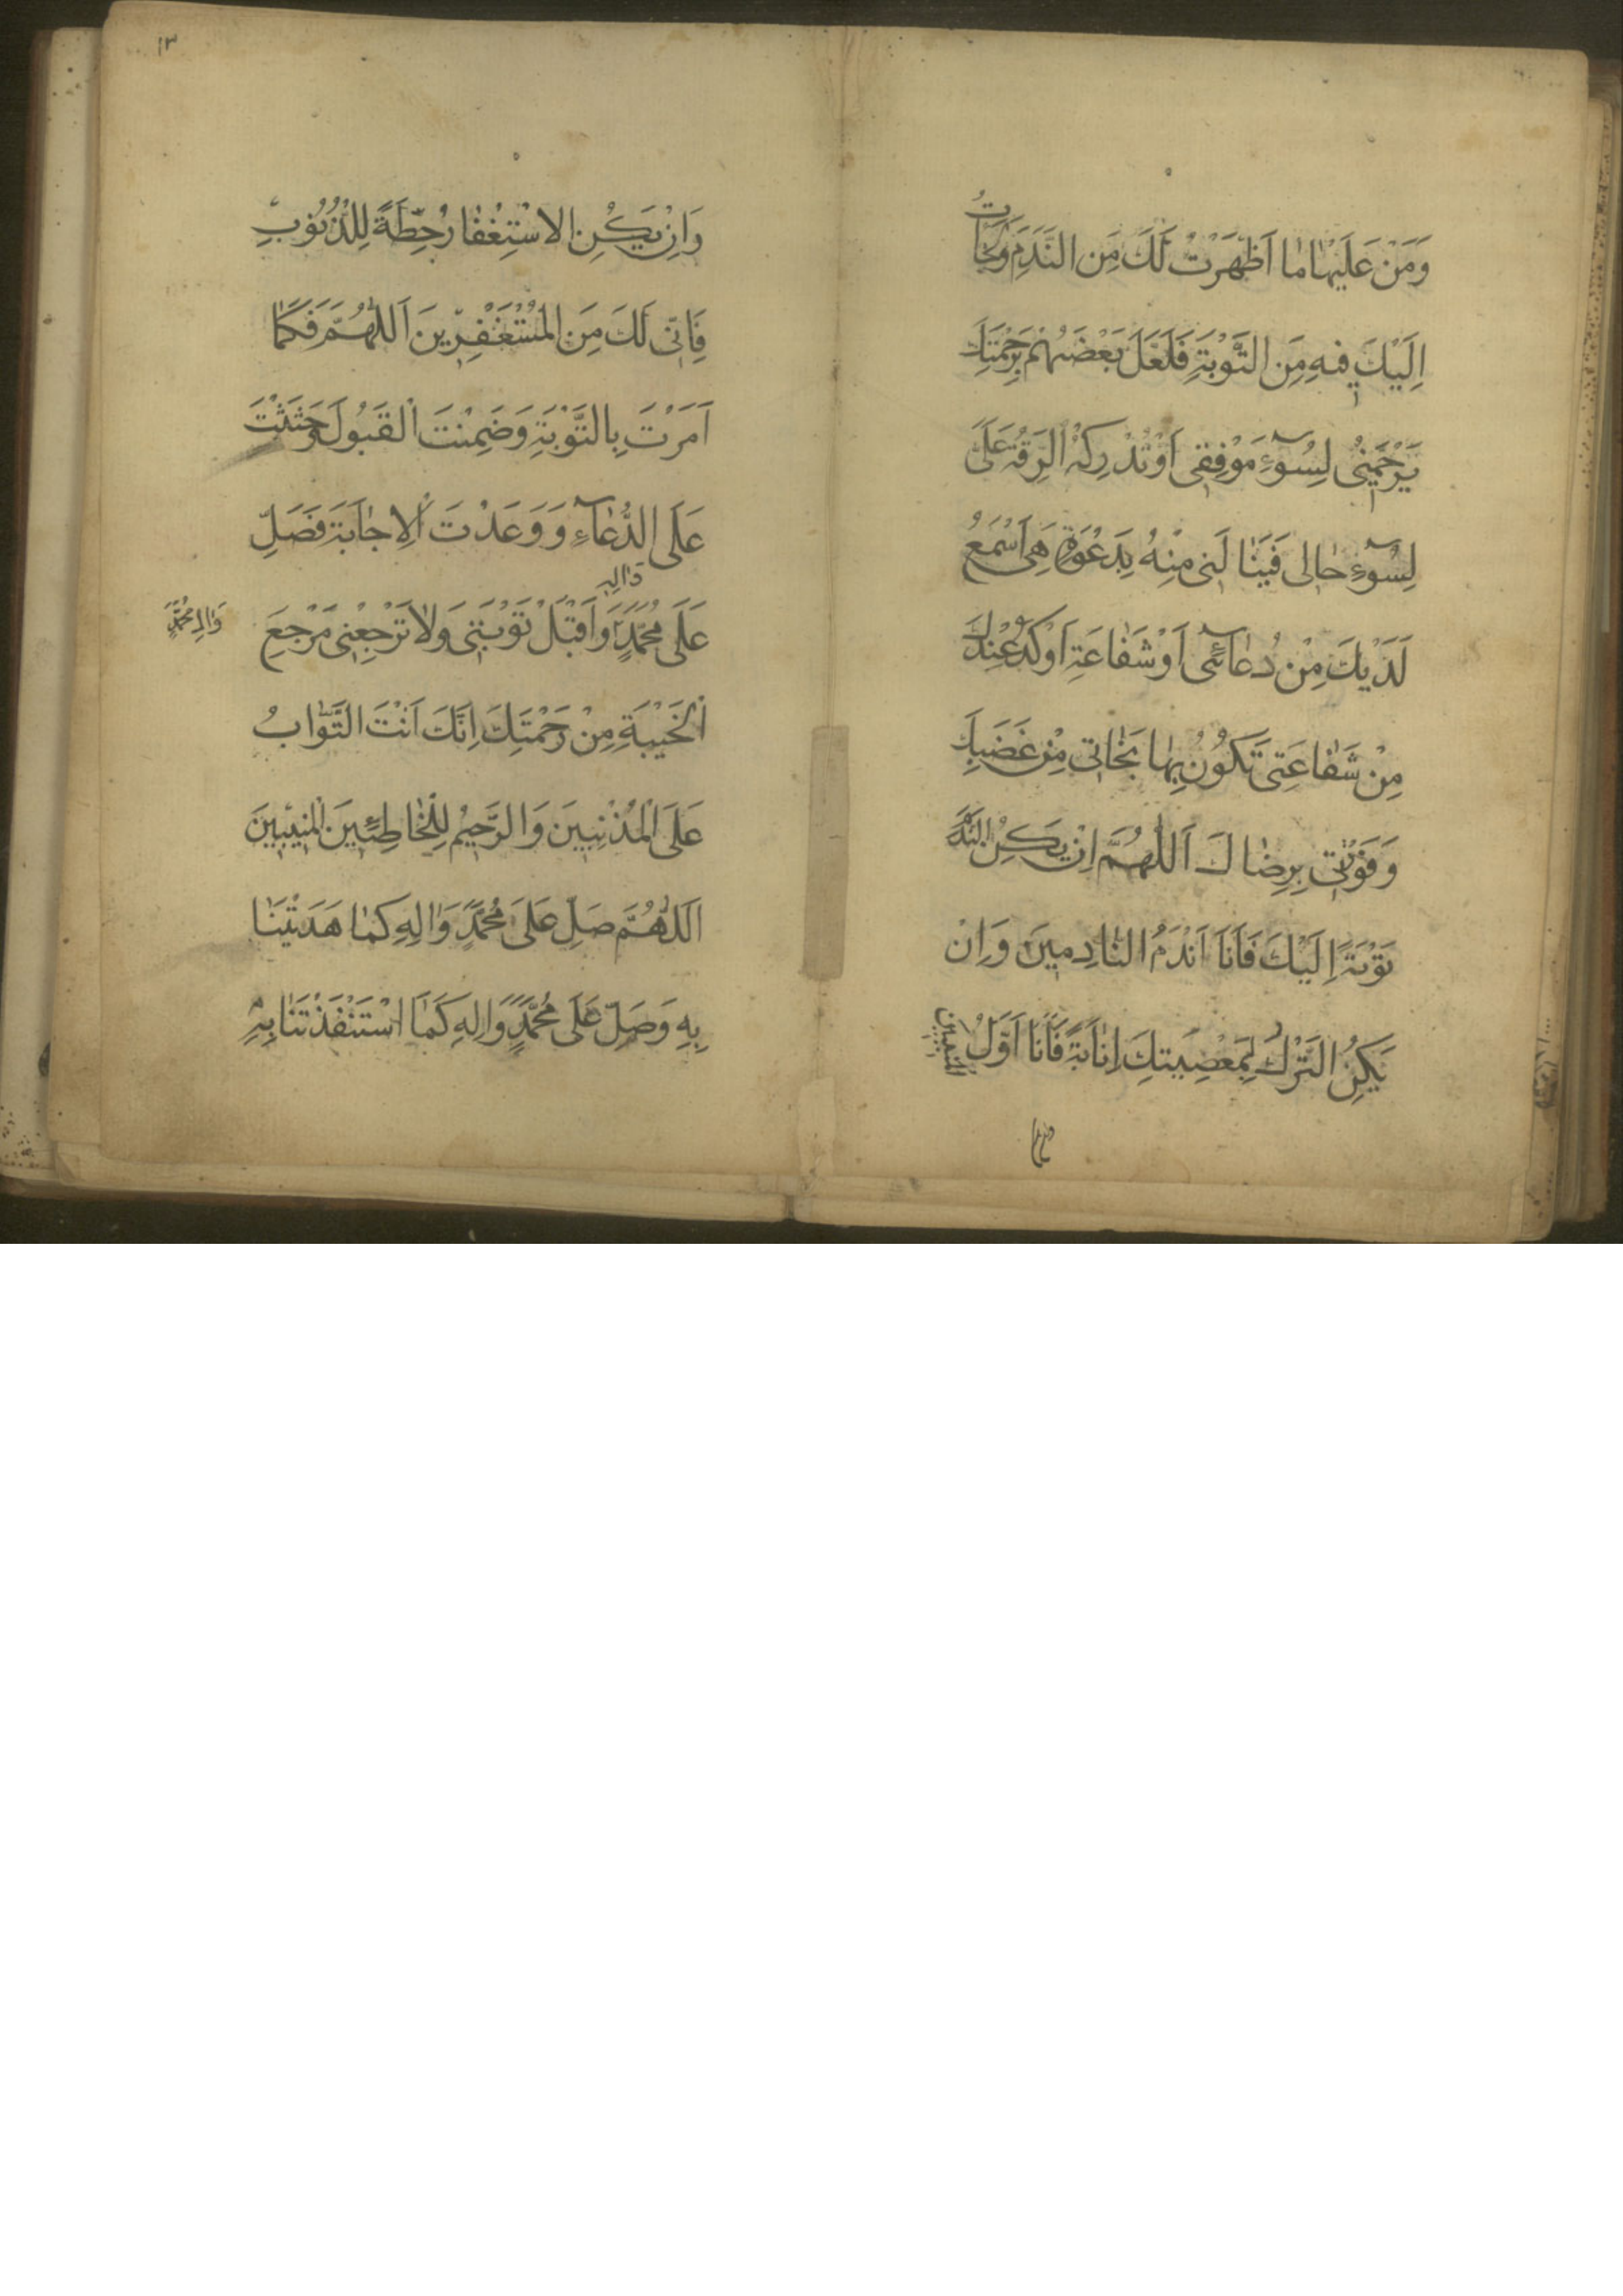 وَمَنْ عَلَيْهَا مَا اَظْهَرْتُ لَكَ مِنَ النَّدَمِ وَلَجَأْتُ
اِلَيْكَ فِيهِ مِنَ التَّوْبَةِ فَلَعَلَّ بَعْضَهُمْ بِرَحْمَتِكَ
يَرْحَمُنِى لِسُوۤءِ مَوْقِفِى اَوْ تُدْرِكُهُ الرِّقَّةُ عَلَىَّ
لِسُوۤءِ حَالِى فَيَنَالَنِى مِنْهُ بِدَعْوَةٍ هِىَ اَسْمَعُ
لَدَيْكَ مِنْ دُعَاۤئِى اَوْ شَفَاعَةٍ اَوْكَدُ عِنْدَكَ
مِنْ شَفَاعَتِى تَكُونُ بِهَا نَجَاتِى مِنْ غَضَبِكَ
وَفَوْزَتِى بِرِضَاكَ اَللّٰهُمَّ اِنْ يَكُنِ النَّدَمُ
تَوْبَةً اِلَيْكَ فَاَنَا اَنْدَمُ النَّادِمِينَ وَاِنْ
يَكُنِ التَّرْكُ لِمَعْصِيَتِكَ اِنَابَةً فَاَنَا اَوَّلُ الْمُنِيبِينَ
١٣
وَاِنْ يَكُنِ الاسْتِغْفَارُ حِطَّةً لِلذُّنُوبِ
فَاِنِّى لَكَ مِنَ الْمُسْتَغْفِرِينَ اَللّٰهُمَّ فَكَمَا
اَمَرْتَ بِالتَّوْبَةِ وَضَمِنْتَ الْقَبُولَ وَحَثَثْتَ
عَلَى الدُّعَاۤءِ وَوَعَدْتَ الْاِجَابَةَ فَصَلِّ
عَلَى مُحَمَّدٍ وَاٰلِهِ وَاقْبَلْ تَوْبَتِى وَلَا تَرْجِعْنِى مَرْجِعَ
وَاٰلِ مُحَمَّدٍ
الْخَيْبَةِ مِنْ رَحْمَتِكَ اِنَّكَ اَنْتَ التَّوَّابُ
عَلَى الْمُذْنِبِينَ وَالرَّحِيمُ لِلْخَاطِئِينَ الْمُنِيبِينَ
اَللّٰهُمَّ صَلِّ عَلَى مُحَمَّدٍ وَاٰلِهِ كَمَا هَدَيْتَنَا
بِهِ وَصَلِّ عَلَى مُحَمَّدٍ وَاٰلِهِ كَمَا اسْتَنْقَذْتَنَا بِهِ